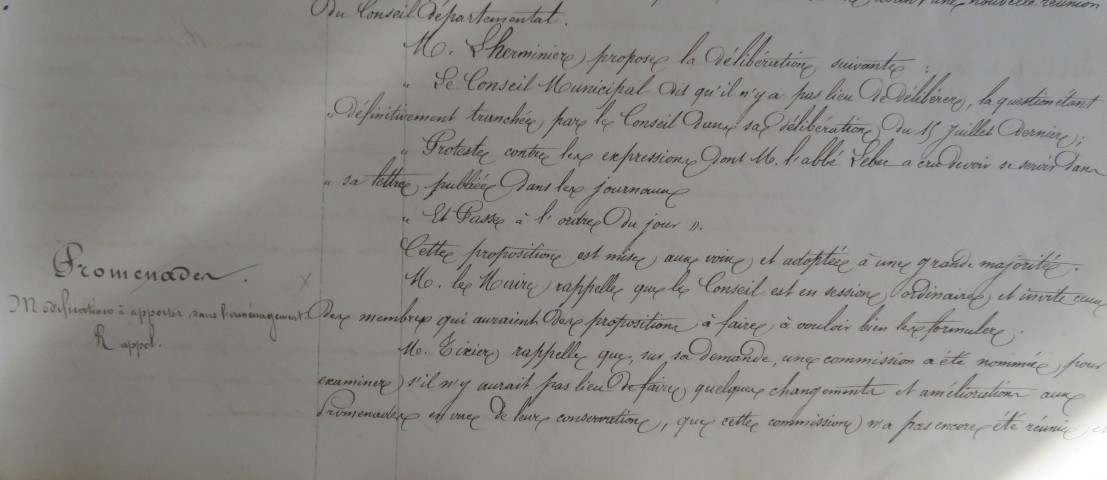 avant une nouvelle réunion
du Conseil départemental.
M. Lherminier, propose la délibération suivante :
" Le Conseil Municipal dit qu'il n'y a pas lieu de délibérer, la question étant
" définitivement tranchée, par le Conseil dans sa délibération du 15 Juillet dernier ;
" Proteste contre les expressions dont M. l'abbé a cru devoir se servir dans
" sa lettre, publiée dans les journaux
" Et Passe à l'ordre du jour ".
Cette proposition est mise aux voix et adoptée à une grande majorité.
Promenades.
M. le Maire rappelle que le Conseil est en session ordinaire et invite ceux
Modifications à apporter dans l'aménagement.
des membres qui auraient des propositions à faire, à vouloir bien les formuler.
Rappel.
M. Tixier rappelle que, sur sa demande, une commission a été nommée, pour
examiner s'il n'y aurait pas lieu de faire, quelques changements et améliorations aux
Promenades en vue de leur conservation, que cette commission n'a pas encore été réunie, et